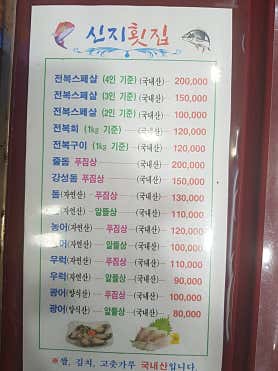 신지횟집
전복스페샬 (4인 기준) (국내산) 200,000
전복스페샬 (3인 기준) (국내산) 150,000
전복스페샬 (2인 기준) (국내산) 100,000
전복회 (1kg 기준) (국내산) 120,000
전복구이 (1kg 기준) (국내산) 120,000
줄돔 푸짐상 (국내산) 200,000
강성돔 푸짐상 (국내산) 150,000
돔(자연산) 푸짐상 (국내산) 130,000
(자연산) 알뜰상 (국내산) 110,000
농어(자연산) 푸짐상 (국내산) 120,000
어(자연산) 알뜰상 (국내산) 100,000
우럭(자연산) 푸짐상 (국내산) 110,000
우럭(자연산) 알뜰상 (국내산) 90,000
광어(양식산) 푸짐상 (국내산) 100,000
광어(양식산) 알뜰상 (국내산) 80,000
*쌀, 김치, 고춧가루 국내산입니다.